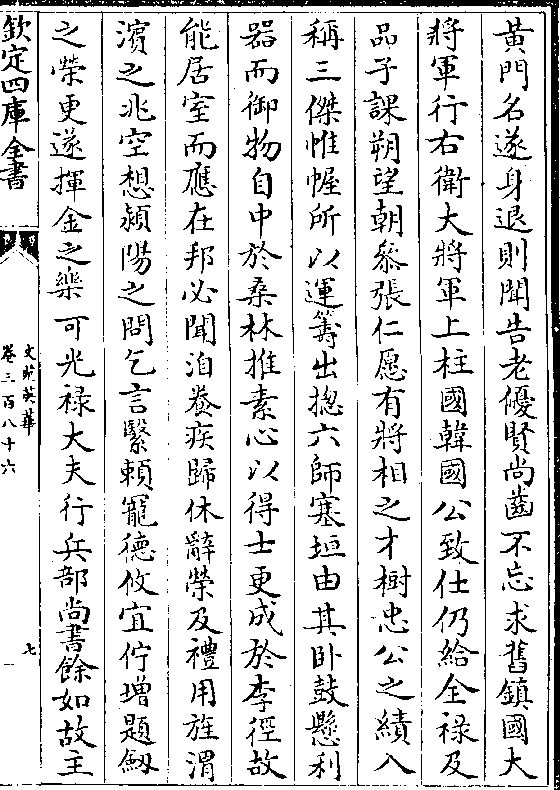 黄門名遂身退則聞告老優賢尚齒不忘求舊鎮國大
將軍行右衛大將軍上柱國韓國公致仕仍給全祿及
品子課朔望朝叅張仁愿有將相之才樹忠公之績入
稱三傑帷幄所以運籌出揔六師塞垣由其卧鼓懸利
器而御物自中於桑林推素心以得士更成於李徑故
能居室而應在邦必聞洎養疾歸休辭榮及禮用旌渭
濱之兆空想潁陽之問乞言緊賴寵德攸宜佇增題劔
之榮更遂揮金之樂可光祿大夫行兵部尚書餘如故主
欽定四庫全書
文苑英華
卷三百八十六
七